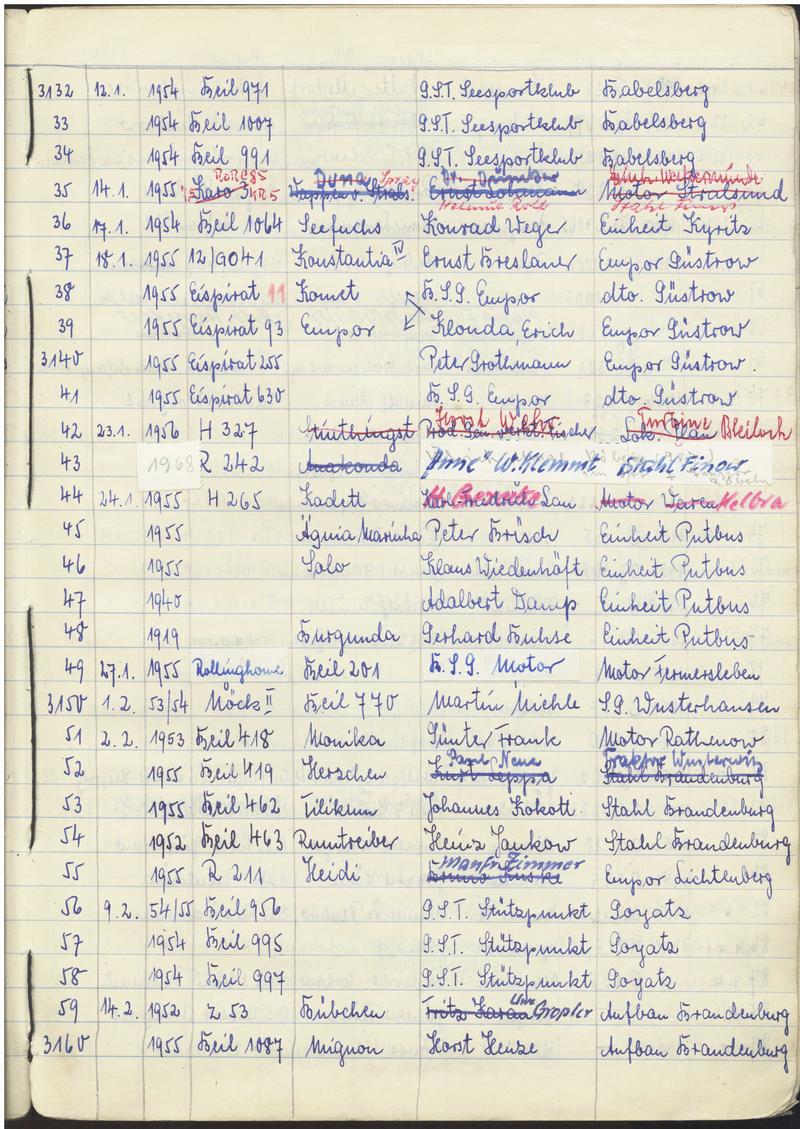 3132 12.1. 1954 Keil 971 G.S.T. Seesportklub Babelsberg
33 1954 Keil 1007 G.S.T. Seesportklub Babelsberg
34 1954 Keil 991 G.S.T. Seesportklub Babelsberg
35 14.1. 1955 Motor Stralsund
36 17.1. 1954 Keil 1064 Seefuchs Konrad Weger Einheit Kyritz
37 18.1. 1955 12/GO41 Konstantia IV Ernst Breslauer Empor Güstrow
38 1955 Eispirat 11 Komet B.S.G. Empor dto. Güstrow
39 1955 Eispirat 93 Empor Klonda, Erich Empor Güstrow
3140 1955 Eispirat 255 Peter Grothmann Empor Güstrow.
41 1955 Eispirat 630 B.S.G. Empor dto. Güstrow
42 23.1. 1956 H 327 Bleiloch
43 1968 R 242 Anakonda "Anne" W. Klemmt Stahl Finow
44 24.1. 1955 H 265 Kadett Motor Waren Kelbra
45 1955 Peter Brüsch Einheit Putbus
46 1955 Solo Klaus Wiedenhäft Einheit Putbus
47 1940 Adalbert Damp Einheit Putbus
48 1919 Burgunda Gerhard Buhse Einheit Putbus
49 27.1. 1955 Keil 201 B.S.G. Motor Motor Fermersleben
3150 1.2. 53/54 Möck II Keil 770 Martin Michle S.G. Wusterhausen
51 2.2. 1953 Keil 418 Monika Günter Frank Motor Rathenow
Paul Neue Traktor Wusterwitz
52 1955 Keil 419 Herschen Stahl Brandenburg
53 1955 Keil 462 Tilikum Johannes Kokott Stahl Brandenburg
54 1952 Keil 463 Rumtreiber Heinz Jankow Stahl Brandenburg
55 1955 R 211 Heidi Manfr. Zimmer Empor Lichtenberg
56 9.2. 54/55 Keil 956 G.S.T. Stützpunkt Goyatz
57 1954 Keil 995 G.S.T. Stützpunkt Goyatz
58 1954 Keil 997 G.S.T. Stützpunkt Goyatz
59 14.2. 1952 Z 53 Bübchen Gropler Aufbau Brandenburg
3160 1955 Keil 1087 Mignon Horst Henze Aufbau Brandenburg